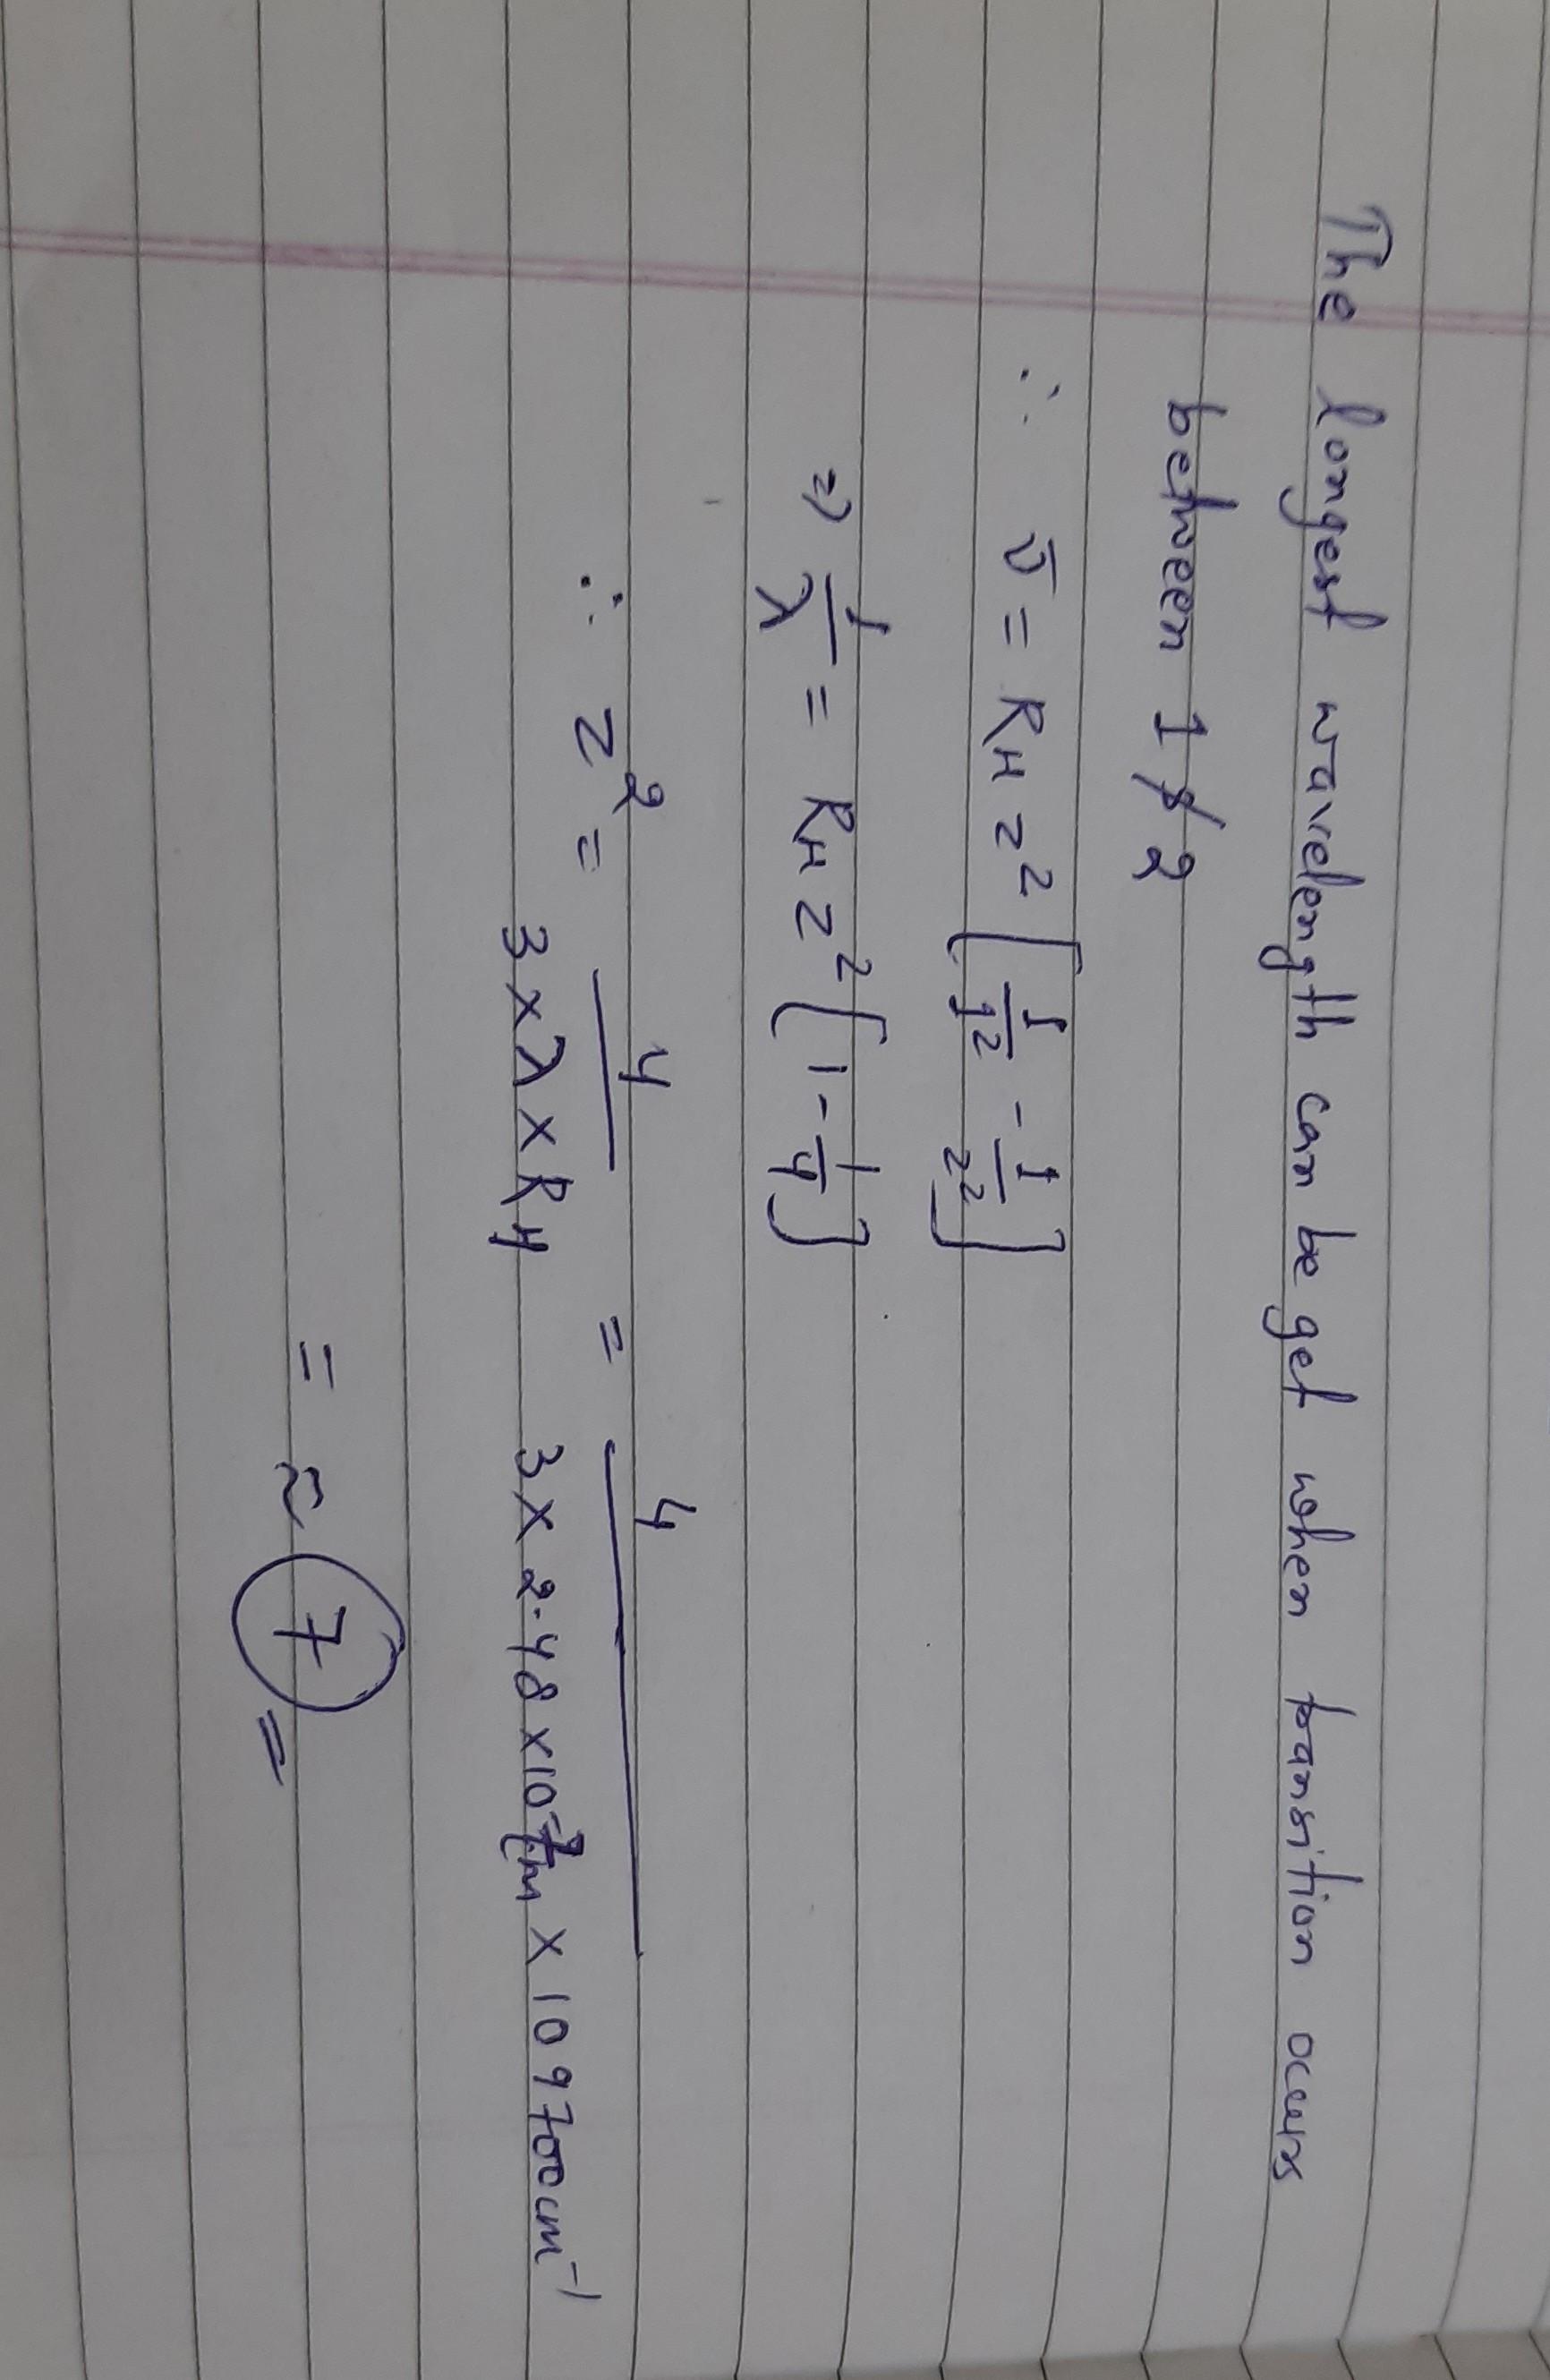 The longest wavelength can be get when transition occurs
between 1 & 2
∴ ῡ = RH z² [1/1² - 1/2²]
⇒ 1/λ = RH z² [1 - 1/4]
∴ z² = 4/3×λ×RH = 4/3 × 2.48 × 10 m × 109700cm⁻¹
= ≈ 7 =